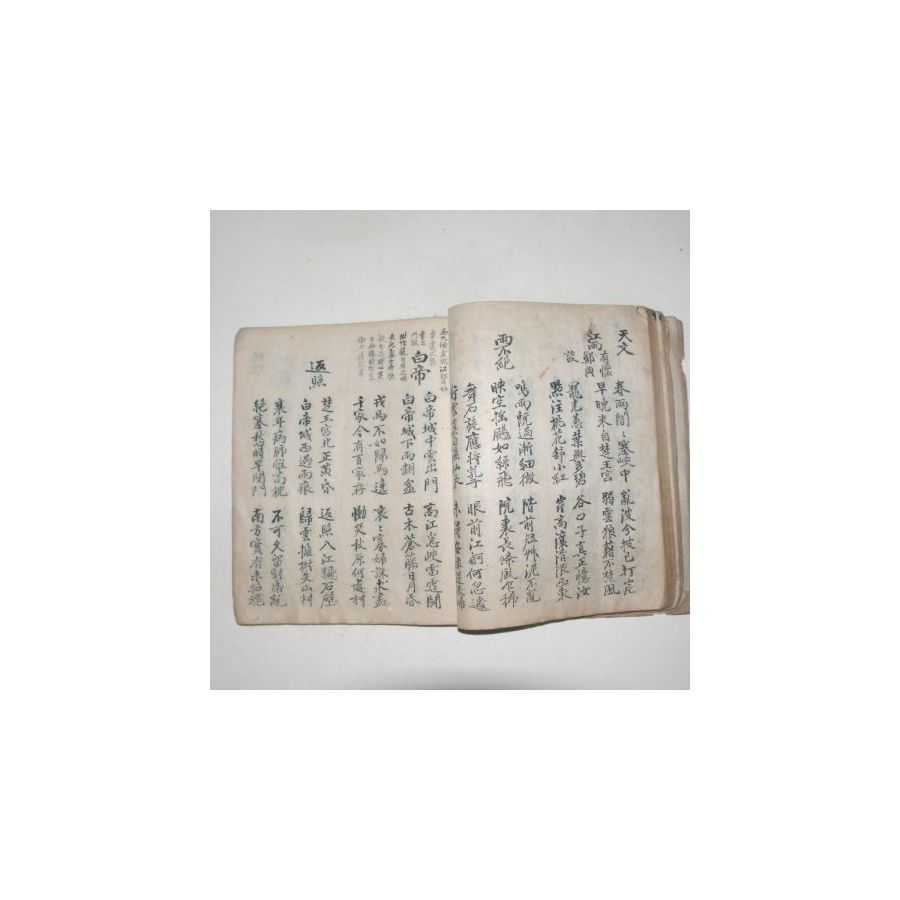 天文
江雨
有懷
鄭典
設
春雨闇〻塞峽中 亂波分披已打岸
早晚來自楚王宮 弱雲狼藉不禁風
寵光蕙葉與多碧 谷口子眞正憶汝
點注桃花舒小紅 岸高瀼滑限西東
雨不絶
鳴雨旣過漸細微 階前短草泥不亂
映空搖颺如絲飛 院裏長條風乍稀
舞石旋應將乳子 眼前江舸何忽遽
行雲 未得安
白帝
白帝城中雲出門 高江急峽雷霆鬪
白帝城下雨翻盆 古木蒼藤日月昏
戎馬不如歸馬逸 哀〻寡婦誅求盡
千家今有百家存 慟哭秋原何處村
返照
楚王宮北正黃昏 返照入江翻石壁
白帝城西過雨痕 歸雲擁樹失山村
衰年病肺惟高枕 不可久留豺虎亂
絶塞愁時早閉門 南方實有未招魂